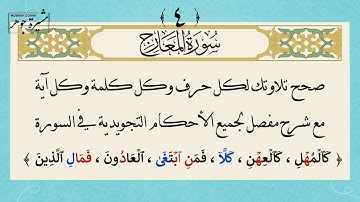 مشيرة جوهر
MOSHIRA GOHAR
٤
سُورَةُ المَعَارِجِ
صحح تلاوتك لكل حرف وكل كلمة وكل آية
مع شرح مفصل لجميع الأحكام التجويدية في السورة
﴿ كَالْمُهْلِ ، كَالْعِهْنِ ، كَلَّآ ، فَمَنِ ابْتَغَىٰ ، الْعَادُونَ ، فَمَالِ الَّذِينَ ﴾